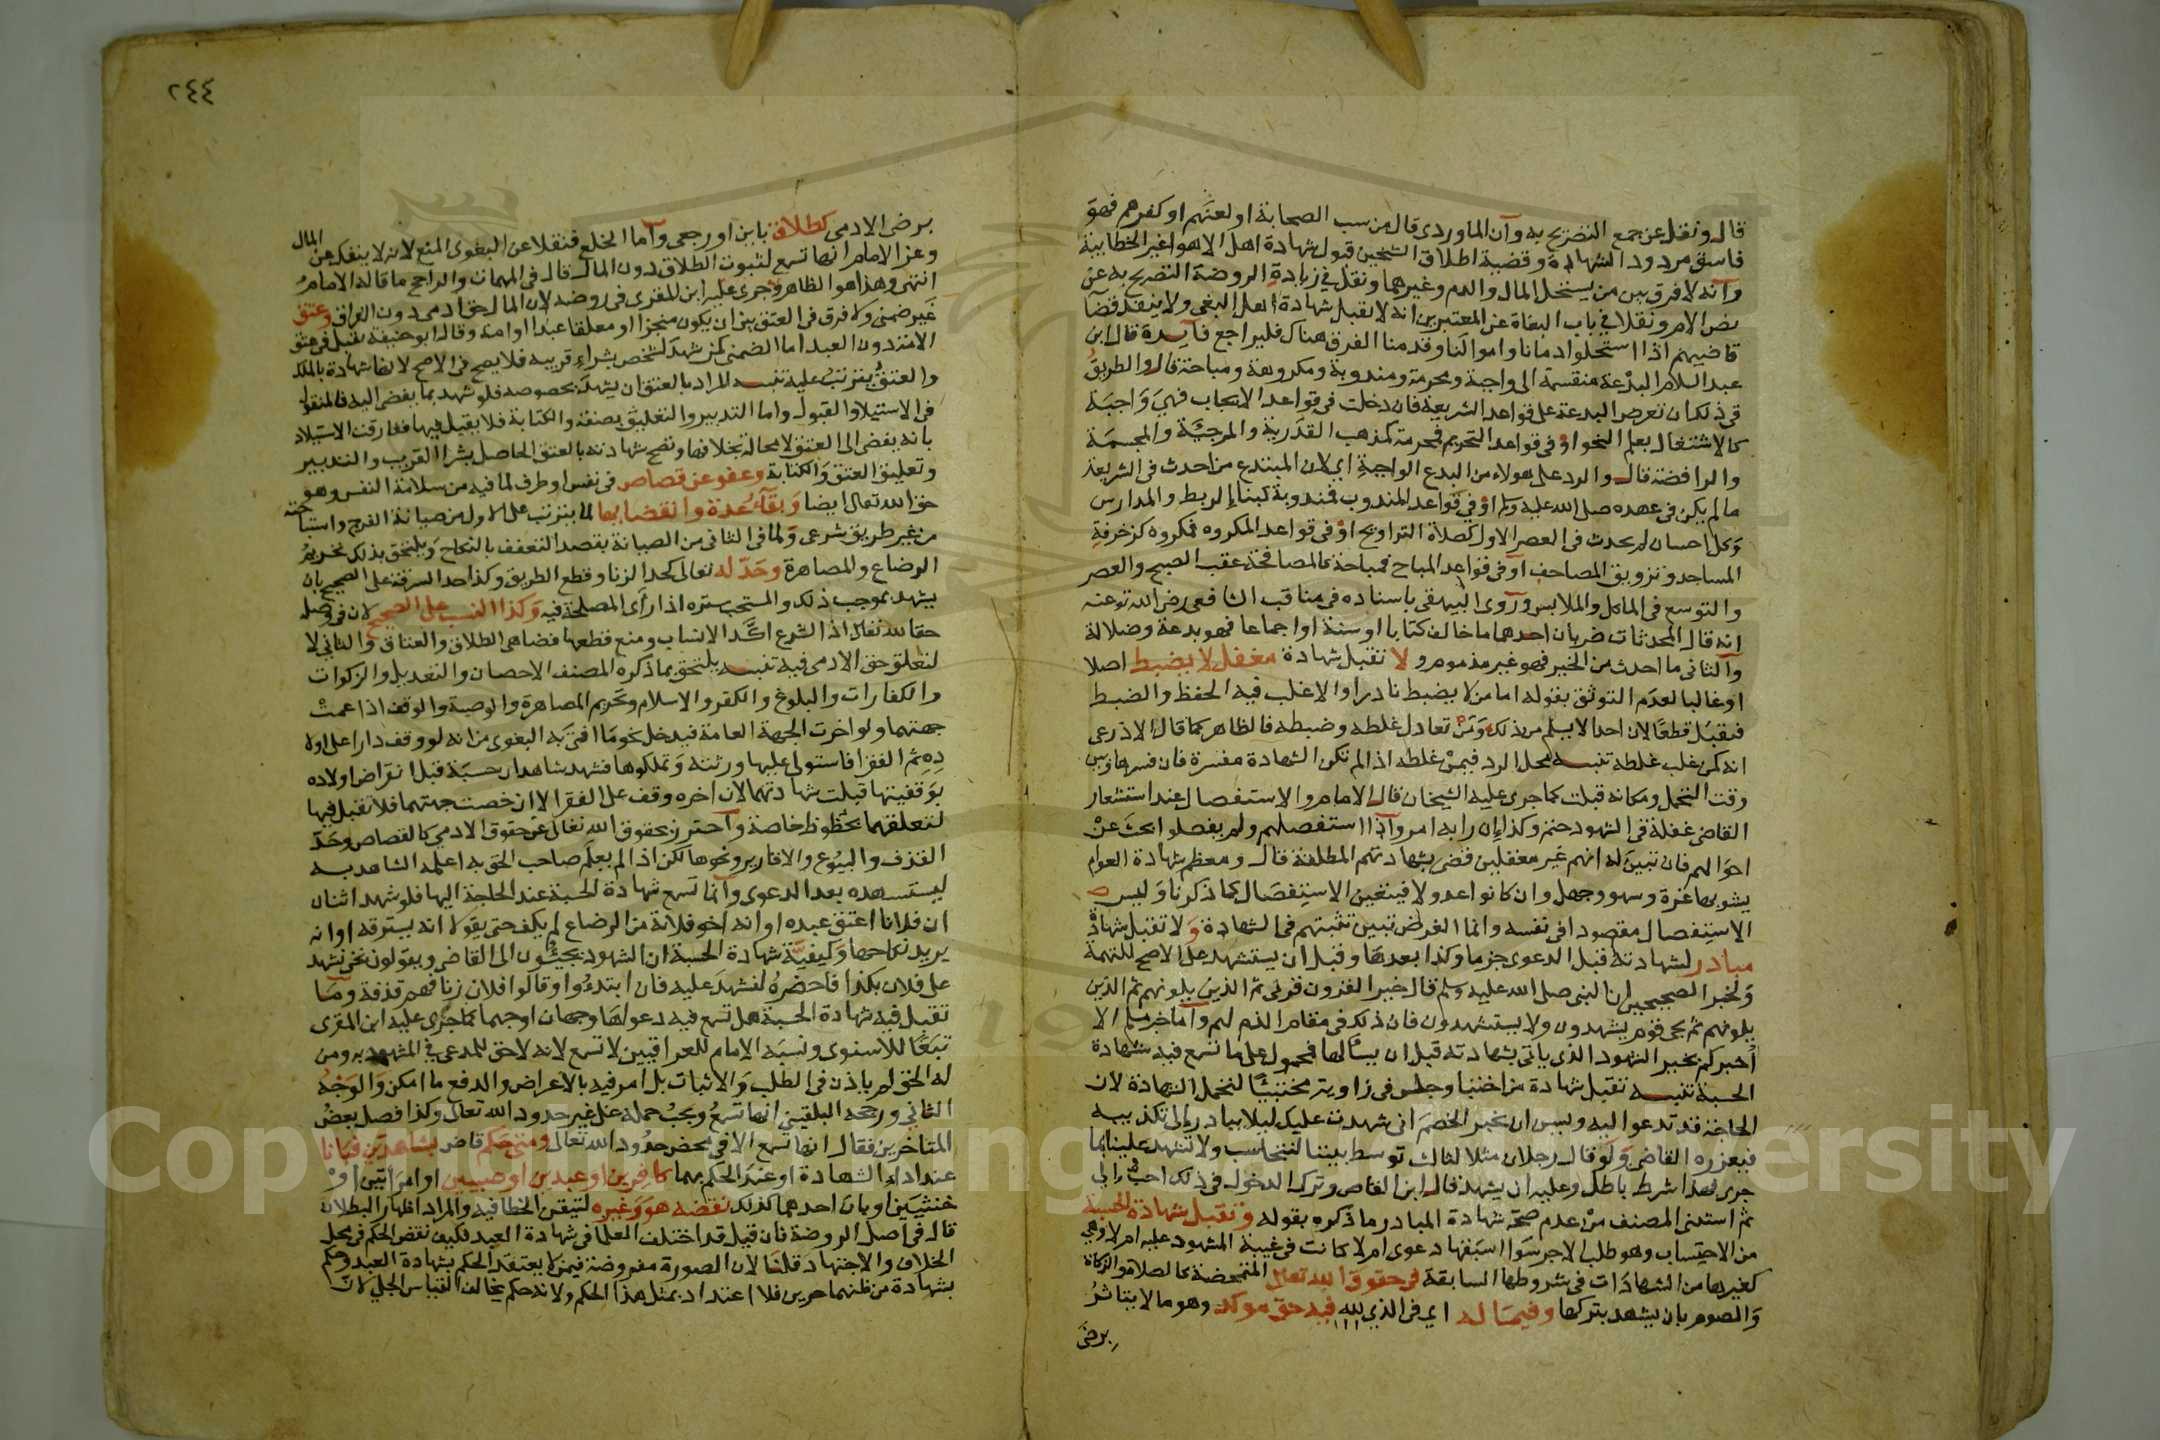 قال ونقل عن جمع التصريح به وأن الماوردي قال من سب الصحابة او لعنهم او كفرهم فهو
فاسق مردود الشهادة وقضية اطلاق الشيخين قبول شهادة اهل الاهوا غير الخطابية
وأنه لا فرق بين من يستحل المال والدم وغيرهما ونقل في زيادة الروضة التصريح به عن
نص الام ونقلا في باب البغاة عن المعتبرين انه لا تقبل شهادة اهل البغي ولا ينفذ قضا
قاضيهم اذا استحلوا دمانا واموالنا وقدمنا الفرق هناك فليراجع فايدة قال ابن
عبد السلام البدعة منقسمة الى واجبة ومحرمة ومندوبة ومكروهة ومباحة قال والطريق
في ذلك ان تعرض البدعة على قواعد الشريعة فان دخلت في قواعد الايجاب فهي واجبة
كالاشتغال بعلم النحو او في قواعد التحريم فمحرمة كمذهب القدرية والمرجية والمجسمة
والرافضة قال والرد على هولاء من البدع الواجبة اي لان المبتدع من احدث في الشريعة
مالم يكن في عهده صلى الله عليه وسلم او في قواعد المندوب فمندوبة كبناء الربط والمدارس
وكل احسان لم يحدث في العصر الاول كصلاة التراويح او في قواعد المكروه فمكروه كزخرفة
المساجد وتزويق المصاحف او في قواعد المباح فمباحة كالمصافحة عقب الصبح والعصر
والتوسع في الماكل والملابس وروى البيهقي باسناده في مناقب الشافعي رضي الله تع عنه
انه قال المحدثات ضربان احدهما ما خالف كتابا او سنة او اجماعا فهو بدعة وضلالة
والثاني ما احدث من الخير فهو غير مذموم ولا تقبل شهادة مغفل لا يضبط اصلا
او غالبا لعدم التوثق بقوله اما من لا يضبط نادرا والاغلب فيه الحفظ والضبط
فتقبل قطعا لان احدا لا يسلم من ذلك ومن تعادل غلطه وضبطه فالظاهر كما قال الاذرعي
انه كمن غلب غلطه تنبيه محل الرد فيمن غلطه اذا لم تكن الشهادة مفسرة فان فسرها وبين
وقت التحمل ومكانه قبلت كما جرى عليه الشيخان قال الامام والاستفصال عند استشعار
القاضي غفلة في الشهود حتم وكذا ان رابه امر واذا استفصلهم ولم يفصلوا بحث عن
احوالهم فان تبين له انهم غير مغفلين قضى بشهادتهم المطلقة قال ومعظم شهادة العوام
يشوبها غرة وسهو وجهل وان كانوا عدولا فيتعين الاستفصال كما ذكرنا وليس
الاستفصال مقصودا في نفسه وانما الغرض تبيين تثبتهم في الشهادة ولا تقبل شهادة
مبادر لشهادته قبل الدعوى جزما وكذا بعدها وقبل ان يستشهد على الاصح للتهمة
ولخبر الصحيحين ان النبي صلى الله عليه وسلم قال خير القرون قرني ثم الذين يلونهم ثم الذين
يلونهم ثم يجي قوم يشهدون ولا يستشهدون فان ذلك في مقام الذم لهم واما خبر مسلم الا
اخبركم بخير الشهود الذي ياتي بشهادته قبل ان يسالها فمحمول على ما تسمع فيه شهادة
الحسبة تنبيه تقبل شهادة من اختبا وجلس في زاوية مختبئا لتحمل الشهادة لان
الحاجة قد تدعوا اليه ويسن ان يخبر الخصم اني شهدت عليك ليلا يبادر الى تكذيبه
فيعزره القاضي ولو قال رجلان مثلا لثالث توسط بيننا لنتحاسب ولا تشهد علينا بما
جرى فهذا شرط باطل وعليه ان يشهد قال ابن القاص وترك الدخول في ذلك احب الي
ثم استثنى المصنف من عدم صحة شهادة المبادر ما ذكره بقوله وتقبل شهادة الحسبة
من الاحتساب وهو طلب الاجر سوا اسبقها دعوى ام لا كانت في غيبة المشهود عليه ام لا وهي
كغيرها من الشهادات في شروطها السابقة في حقوق الله تعالى المتمحضة كالصلاة والزكاة
والصوم بان يشهد بتركها وفيما له اي في الذي لله فيه حق موكد وهو ما لا يتاثر
برضى
٢٤٤
برضى الادمي كطلاق باين او رجعي واما الخلع فنقلا عن البغوي المنع لانه لا ينفك عن المال
وعن الامام انها تسمع لثبوت الطلاق دون المال قال في المهمات والراجح ما قاله الامام
انتهى وهذا هو الظاهر وجرى عليه ابن المقري في روضه لان المال حق ادمي دون الفراق وعتق
غير ضمني ولا فرق في العتق بين ان يكون منجزا او معلقا عبدا او امة وقال ابو حنيفة تقبل في عتق
الامة دون العبد اما الضمني كمن شهد لشخص بشراء قريبه فلا يصح في الاصح لانها شهادة بالملك
والعتق يترتب عليه تنبيه المراد بالعتق ان يشهد بخصوصه فلو شهد بما يفضي اليه فالمنقول
في الاستيلاد القبول واما التدبير والتعليق بصفة والكتابة فلا يقبل فيها ففارقت الاستيلاد
بانه يفضي الى العتق لا محالة بخلافها وتصح شهادته بالعتق الحاصل بشرا القريب والتدبير
وتعليق العتق والكتابة وعفو عن قصاص في نفس او طرف لما فيه من سلامة النفس وهو
حق الله تعالى ايضا وبقاء عدة وانقضايها لما يترتب على الاول من صيانة الفرج واستباحته
من غير طريق شرعي ولما في الثاني من الصيانة بقصد التعفف بالنكاح ويلتحق بذلك تحريم
الرضاع والمصاهرة وحد له تعالى كحد الزنا وقطع الطريق وكذا حد السرقة على الصحيح بان
يشهد بموجب ذلك والمستحب ستره اذا رأى المصلحة فيه وكذا النسب على الصحيح لان في وصله
حقا لله تعالى اذ الشرع اكد الانساب ومنع قطعها فضاهى الطلاق والعتاق والثاني لا
لتعلق حق الادمي فيه تنبيه يلتحق بما ذكره المصنف الاحصان والتعديل والزكوات
والكفارات والبلوغ والكفر والاسلام وتحريم المصاهرة والوصية والوقف اذا عمت
جهتهما ولو اخرت الجهة العامة فيدخل نحو ما افتى به البغوي من انه لو وقف دارا على اولا
ده ثم الفقرا فاستولى عليها ورثته وتملكوها فشهد شاهدان حسبة قبل انقراض اولاده
بوقفيتها قبلت شهادتهما لان اخره وقف على الفقرا لا ان خصت جهتهما فلا تقبل فيها
لتعلقهما بحظوظ خاصة واحترز بحقوق الله تعالى عن حقوق الادمي كالقصاص وحد
القذف والبيوع والاقارير ونحوها لكن اذا لم يعلم صاحب الحق به اعلمه الشاهد به
ليستشهده بعد الدعوى وانما تسمع شهادة الحسبة عند الحاجة اليها فلو شهد اثنان
ان فلانا اعتق عبده او انه اخو فلانة من الرضاع لم يكف حتى يقولا انه يسترقه او انه
يريد نكاحها وكيفية شهادة الحسبة ان الشهود يجيئون الى القاضي ويقولون نحن نشهد
على فلان بكذا فاحضره لنشهد عليه فان ابتدءوا وقالوا فلان زنا فهم قذفة وما
تقبل فيه شهادة الحسبة هل تسمع فيه دعواها وجهان اوجههما كما جرى عليه ابن المقري
تبعا للاسنوي ونسبه الامام للعراقيين لا تسمع لانه لا حق للمدعي في المشهود به ومن
له الحق لم ياذن في الطلب والاثبات بل امر فيه بالاعراض والدفع ما امكن والوجه
الثاني ورجحه البلقيني انها تسمع ويجب حمله على غير حدود الله تعالى وكذا فصل بعض
المتاخرين فقال انها تسمع الا في محض حدود الله تعالى ومتى حكم قاض بشاهدين فبانا
عند اداء الشهادة او عند الحكم بهما كافرين او عبدين او صبيين او امراتين او
خنثيين او بان احدهما كذلك نقضه هو وغيره لتيقن الخطا فيه والمراد اظهار البطلان
قال في اصل الروضة فان قيل قد اختلف العلما في شهادة العبد فكيف نقض الحكم في محل
الخلاف والاجتهاد قلنا لان الصورة مفروضة فيمن لا يعتقد الحكم بشهادة العبد وحكم
بشهادة من ظنهما حرين فلا اعتداد بمثل هذا الحكم ولانه حكم يخالف القياس الجلي لان
Copyright © King Saud University